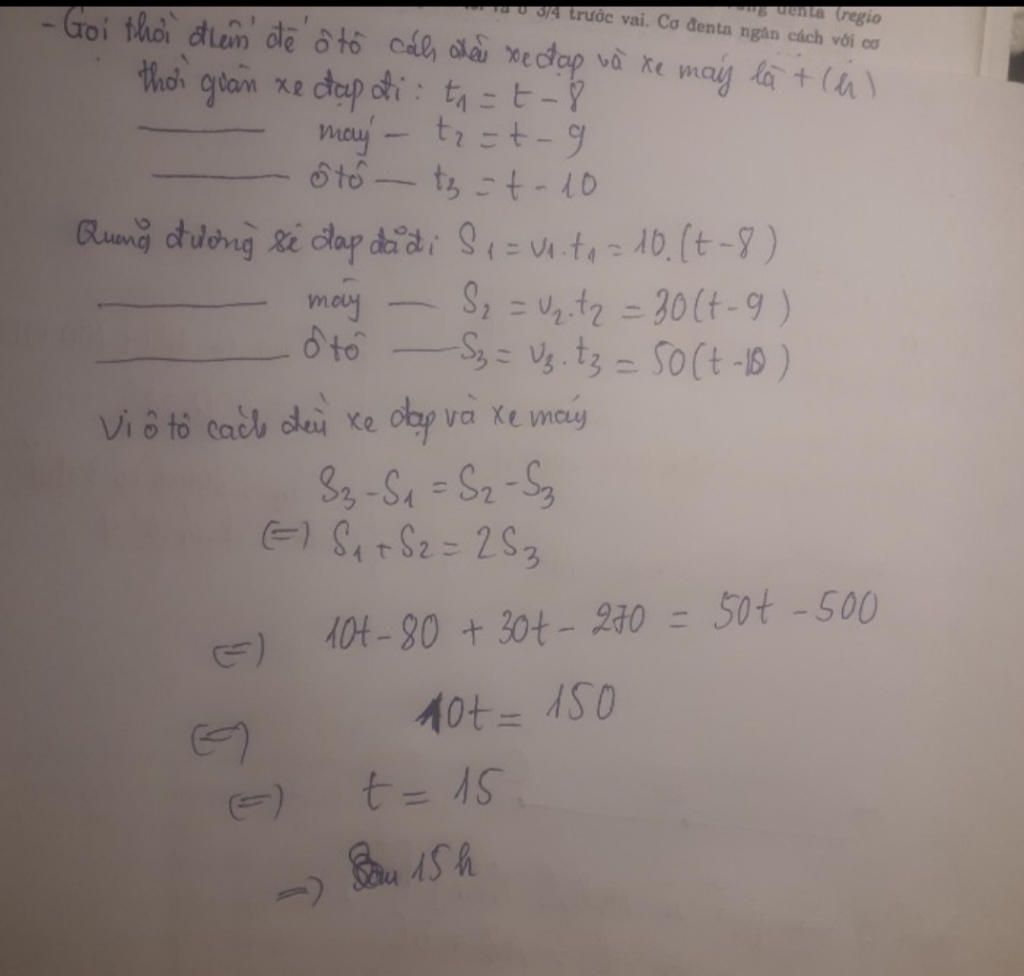 ở 3/4 trước vai. Cơ đenta ngăn cách với cơ
đenta (regio
- Gọi thời điểm để ôtô cách đều xe đạp và xe máy là t (h)
thời gian xe đạp đi : t₁ = t - 8
——— máy — t₂ = t - 9
——— ôtô — t₃ = t - 10
Quãng đường xe đạp đã đi S₁ = v₁.t₁ = 10.(t-8)
——— máy — S₂ = v₂.t₂ = 30(t-9)
——— ôtô — S₃ = v₃.t₃ = 50(t-10)
Vì ô tô cách đều xe đạp và xe máy
S₃ - S₁ = S₂ - S₃
(=) S₁ + S₂ = 2S₃
(=) 10t - 80 + 30t - 270 = 50t - 500
(=) 10t = 150
(=) t = 15
=) Sau 15h